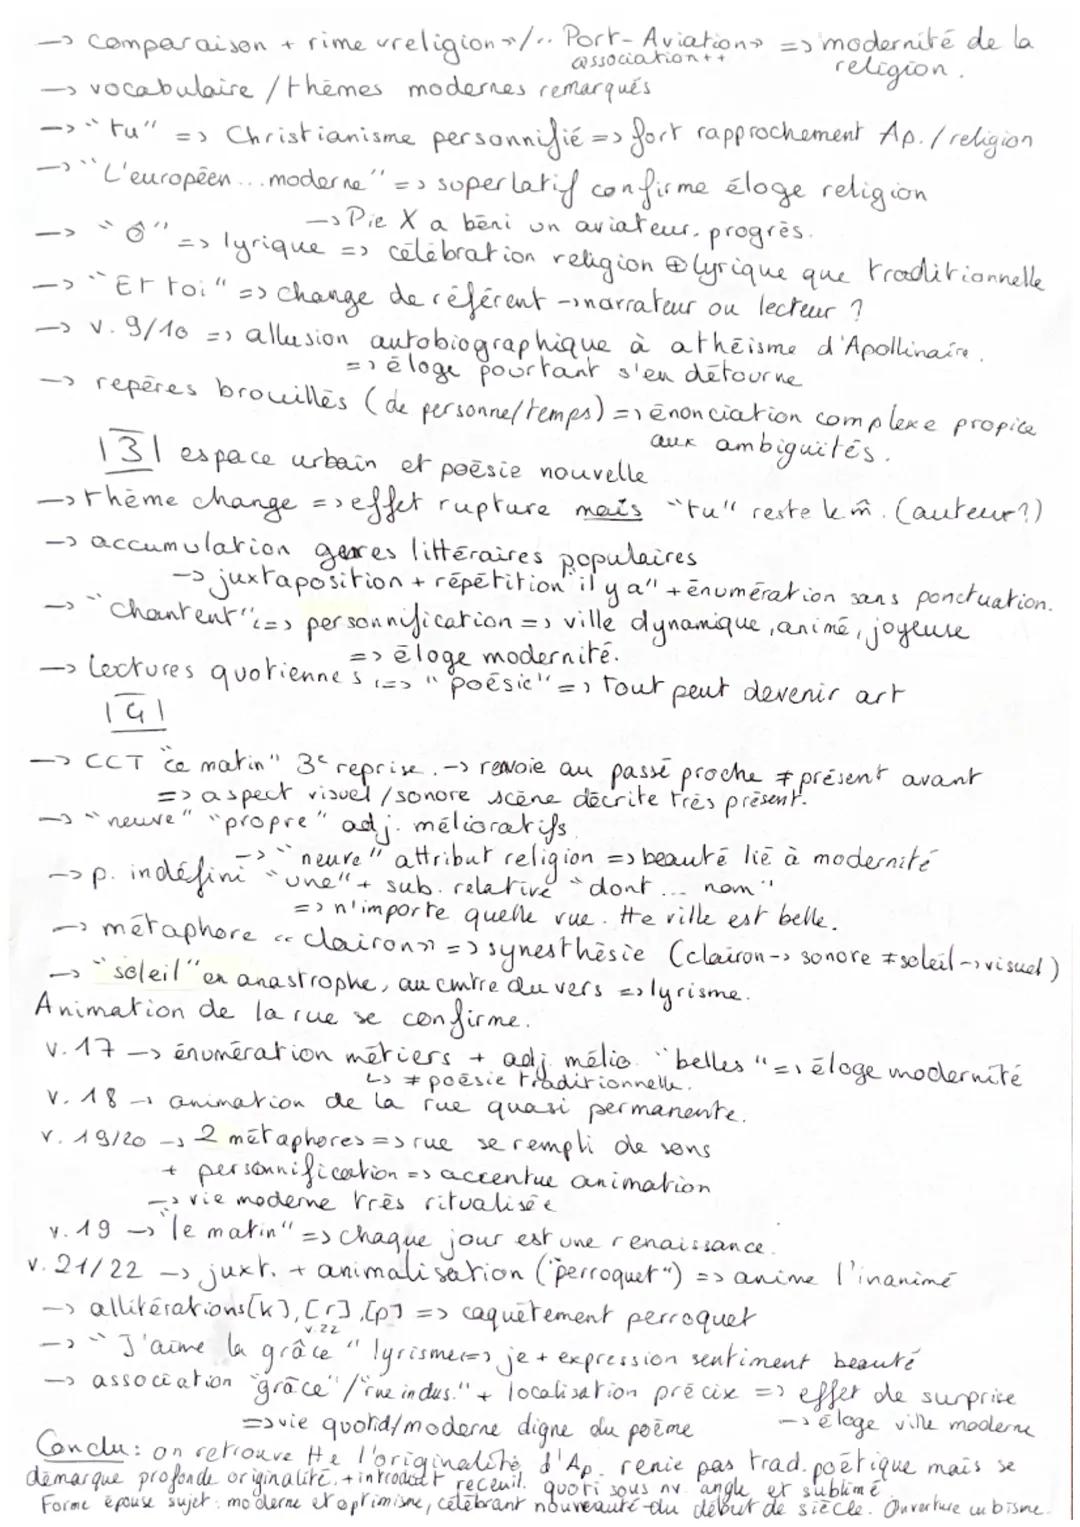 -> comparaison + rime «religion»/.. Port-Aviation» => modernité de la
association ++ religion.
-> vocabulaire / thèmes modernes remarqués
-> "tu" => Christianisme personnifié => fort rapprochement Ap. / religion
-> "L'européen ... moderne" => superlatif confirme éloge religion
-> Pie X a béni un aviateur, progrès.
-> "ô" => lyrique => célébration religion ⊕ lyrique que traditionnelle
-> "Et toi" => change de référent -> narrateur ou lecteur ?
-> v. 9/10 => allusion autobiographique à athéisme d'Apollinaire.
=> éloge pourtant s'en détourne
-> repères brouillés (de personne/temps) => énonciation complexe propice
aux ambiguïtés.
|3| espace urbain et poésie nouvelle
-> thème change => effet rupture mais "tu" reste le m̂. (auteur?)
-> accumulation genres littéraires populaires
-> juxtaposition + répétition "il y a" + énumération sans ponctuation.
-> "chantent" => personnification => ville dynamique, animé, joyeuse
=> éloge modernité.
-> lectures quotiennes <=> "poésie" => tout peut devenir art
|4|
-> CCT "ce matin" 3e reprise. -> renvoie au passé proche ≠ présent avant
=> aspect visuel / sonore scène décrite très présent.
-> "neuve" "propre" adj. mélioratifs
-> "neuve" attribut religion => beauté lié à modernité
-> p. indéfini "une" + sub. relative "dont ... nom"
=> n'importe quelle rue. tte ville est belle.
-> métaphore «clairon» => synesthésie (clairon -> sonore ≠ soleil -> visuel)
-> "soleil" en anastrophe, au centre du vers => lyrisme.
Animation de la rue se confirme.
v. 17 -> énumération métiers + adj. mélio. "belles" => éloge modernité
↳ ≠ poésie traditionnelle.
v. 18 -> animation de la rue quasi permanente.
v. 19/20 -> 2 métaphores => rue se rempli de sons
+ personnification => accentue animation
-> vie moderne très ritualisée
v. 19 -> "le matin" => chaque jour est une renaissance.
v. 21/22 -> juxt. + animalisation ("perroquet") => anime l'inanimé
-> allitérations [k], [r], [p] => caquètement perroquet
v.22
-> "J'aime la grâce" lyrisme <=> je + expression sentiment beauté
-> association "grâce" / "rue indus." + localisation précise => effet de surprise
=> vie quotid/moderne digne du poème -> éloge ville moderne
Conclu: on retrouve tte l'originalité d'Ap. renie pas trad. poétique mais se
démarque profonde originalité. + introduit receuil. quoti sous nv. angle et sublimé
Forme épouse sujet : moderne et optimisme, célébrant nouveauté du début de siècle. Ouverture cubisme.